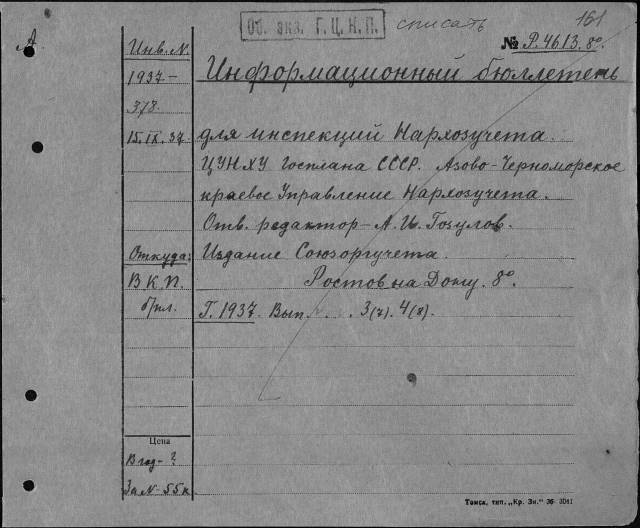 Об. экз. Г.Ц.К.П.
списать
161
А
Инв. N.
№ Р.4613.8º.
1937-
378.
15.IX.37.
Информационный бюллетень
для инспекций Нархозучета.
ЦУНХУ Госплана СССР. Азово-Черноморское
краевое Управление Нархозучета.
Отв. редактор-А. И. Гозулов.
Откуда:
Издание Союзоргучета.
В К.П.
Ростов на Дону. 8º.
б/пл.
Г. 1937. Вып. . . . 3(7). 4(8).
Цена
В год-?
За N-55 к.
Томск, тип. „Кр. Зн." 36 3041